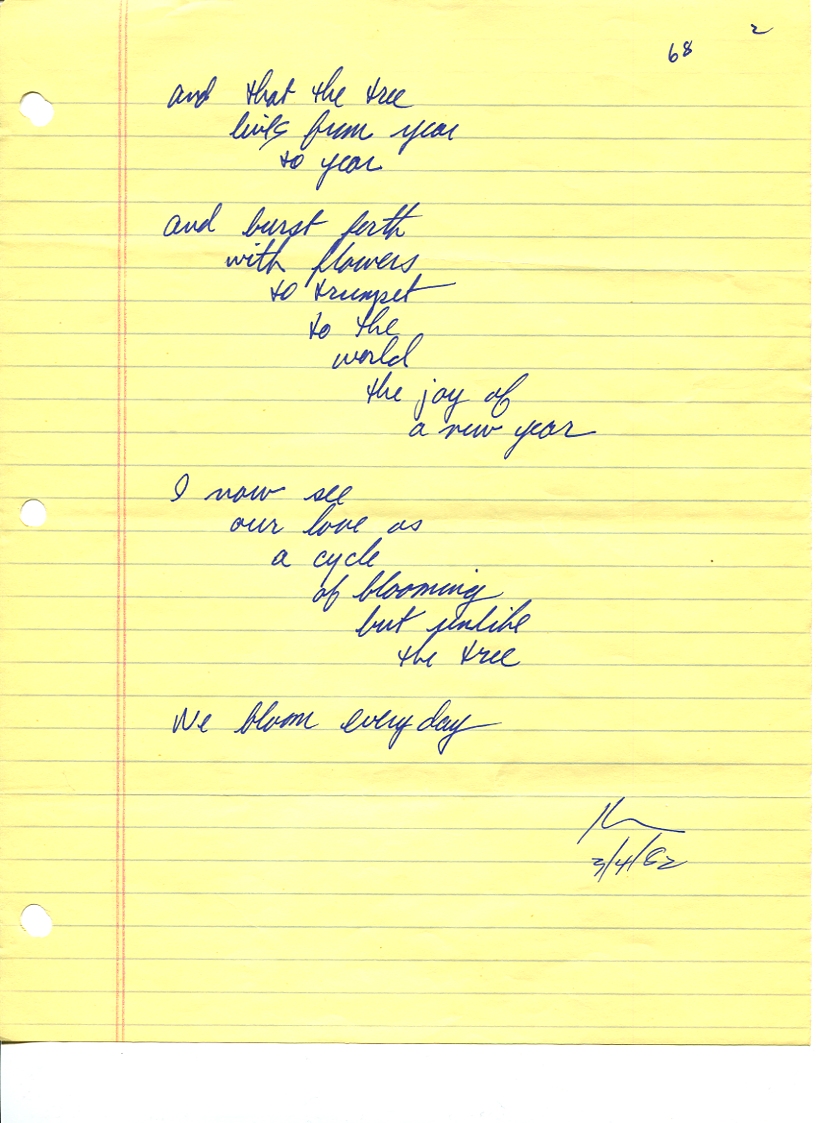 2
68
and that the tree
lives from year
to year
and burst forth
with flowers
to trumpet
to the
world
the joy of
a new year
I now see
our love as
a cycle
of blooming
but unlike
the tree
We bloom everyday
3/4/82